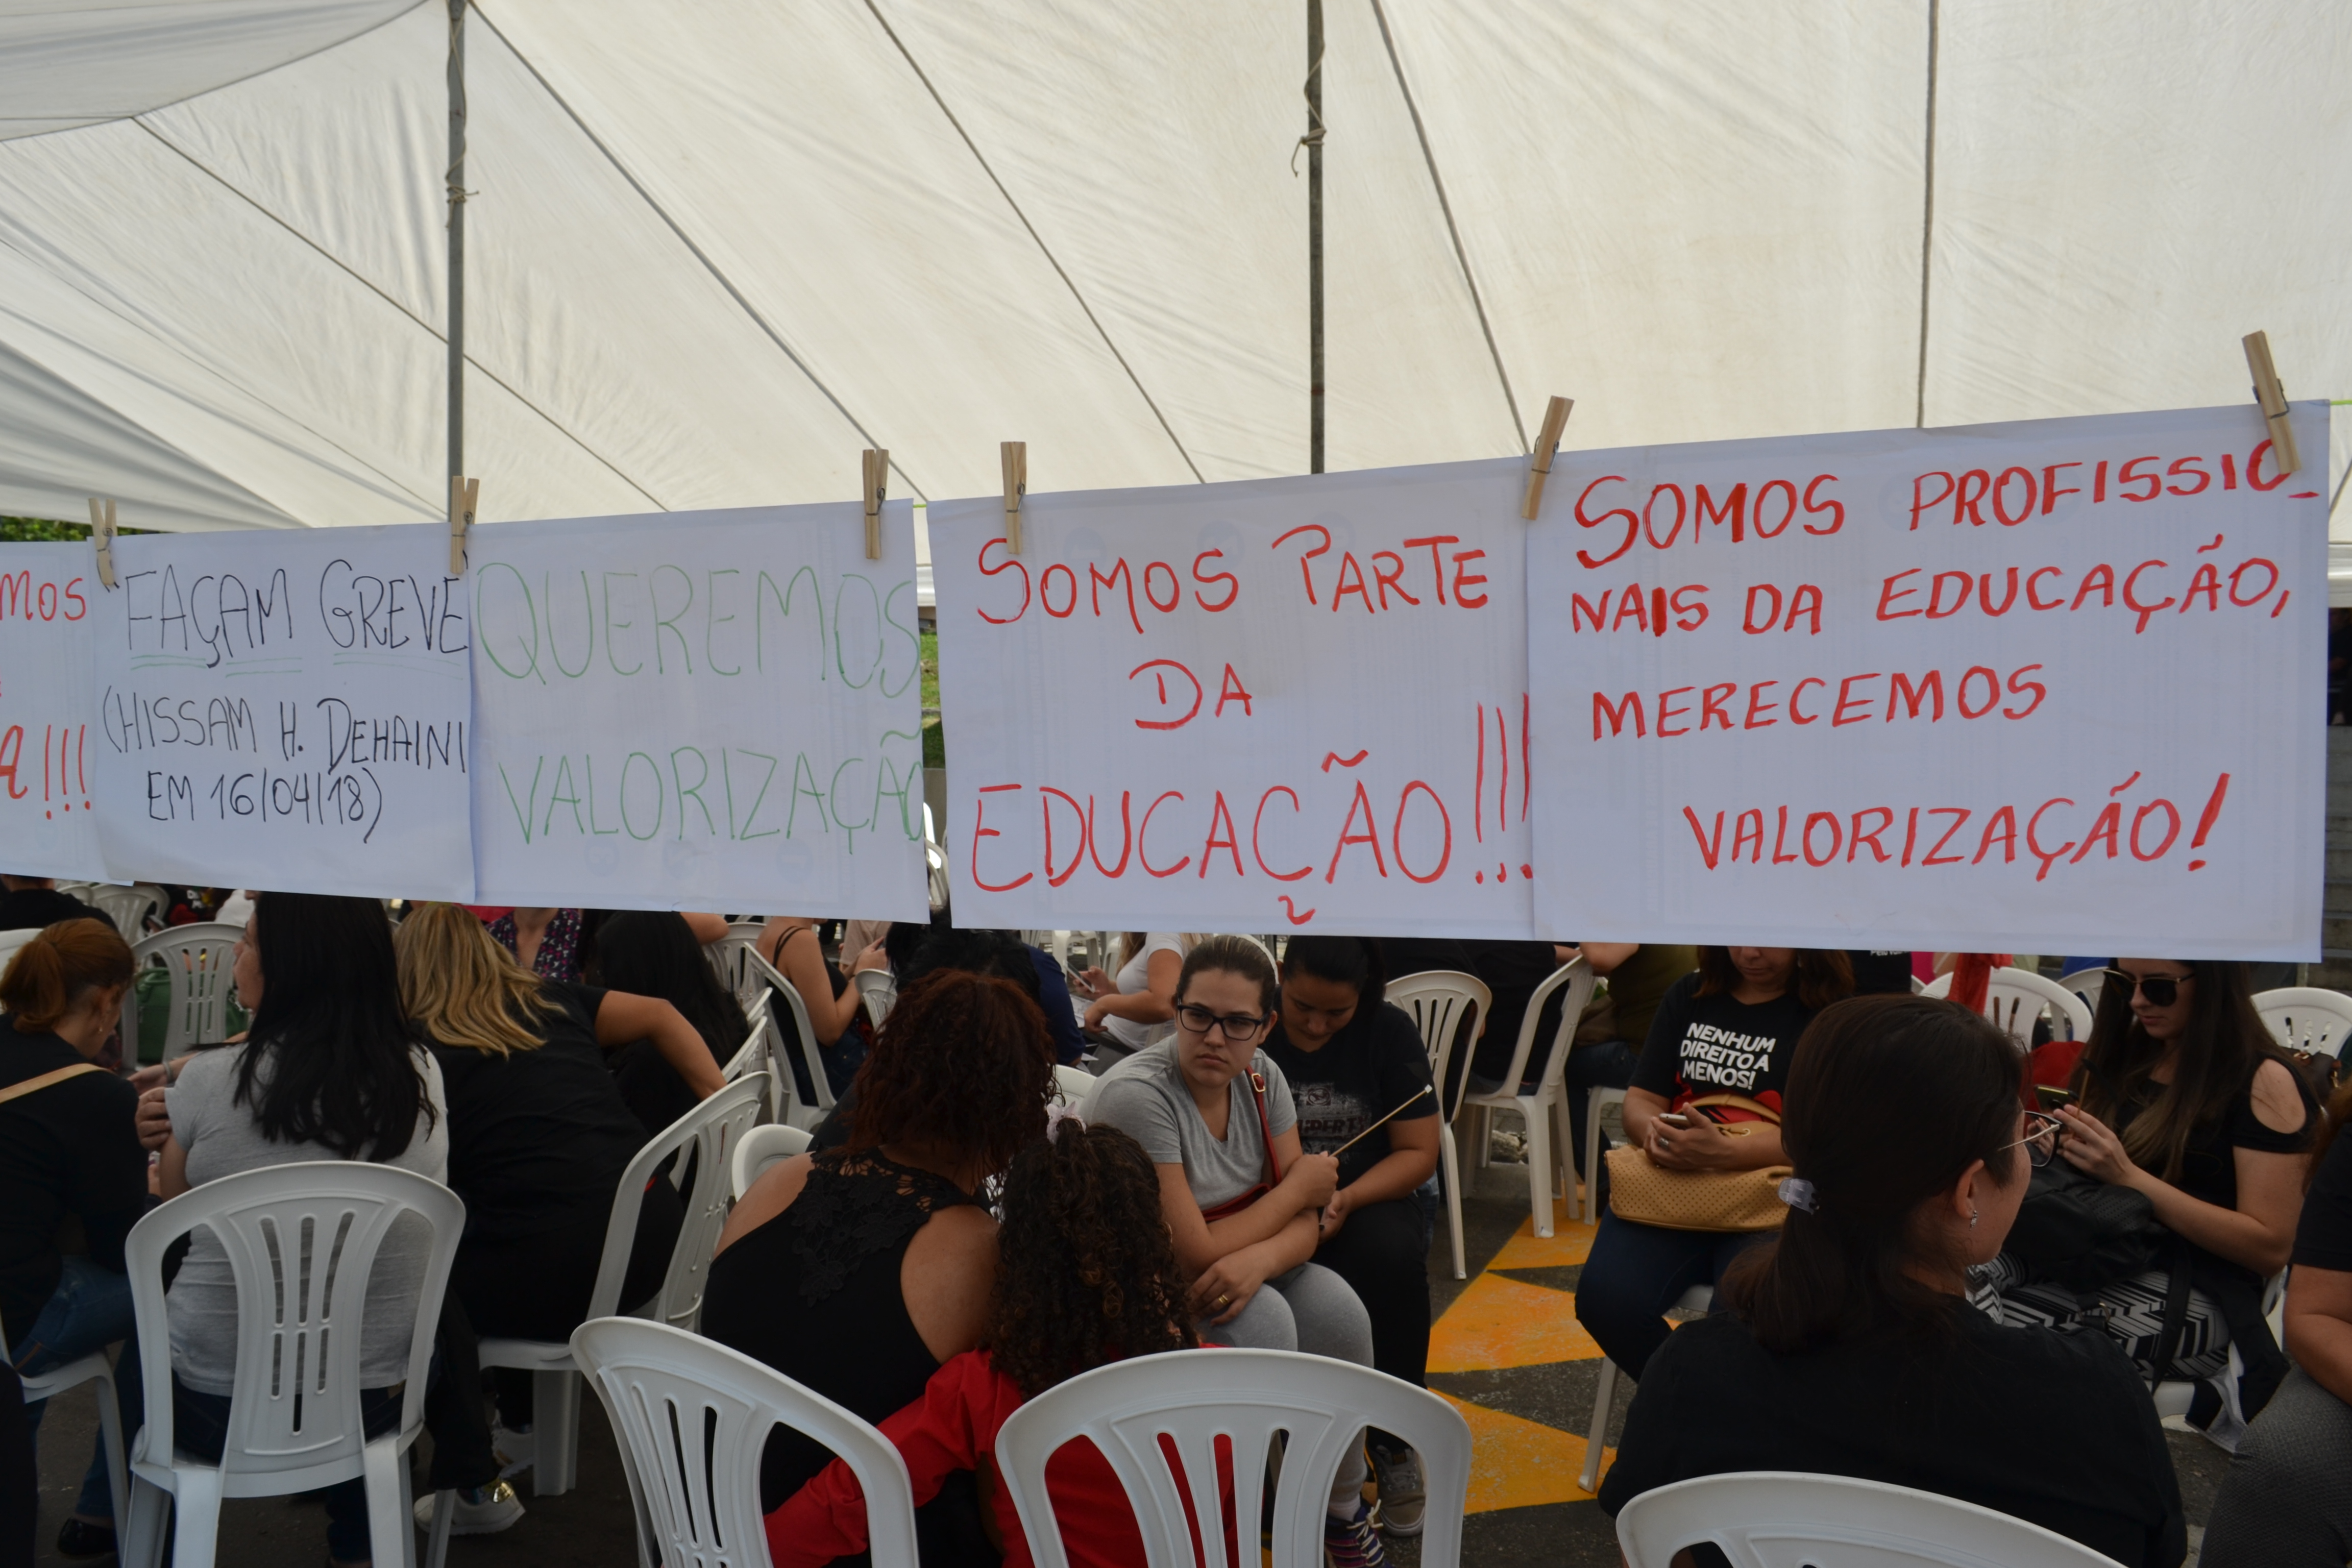 MOS
A!!!
FAÇAM GREVE
(HISSAM H. DEHAINI
EM 16/04/18)
QUEREMOS
VALORIZAÇÃO
SOMOS PARTE
DA
EDUCAÇÃO!!!
SOMOS PROFISSIO_
NAIS DA EDUCAÇÃO,
MERECEMOS
VALORIZAÇÃO!
NENHUM
DIREITO A
MENOS!